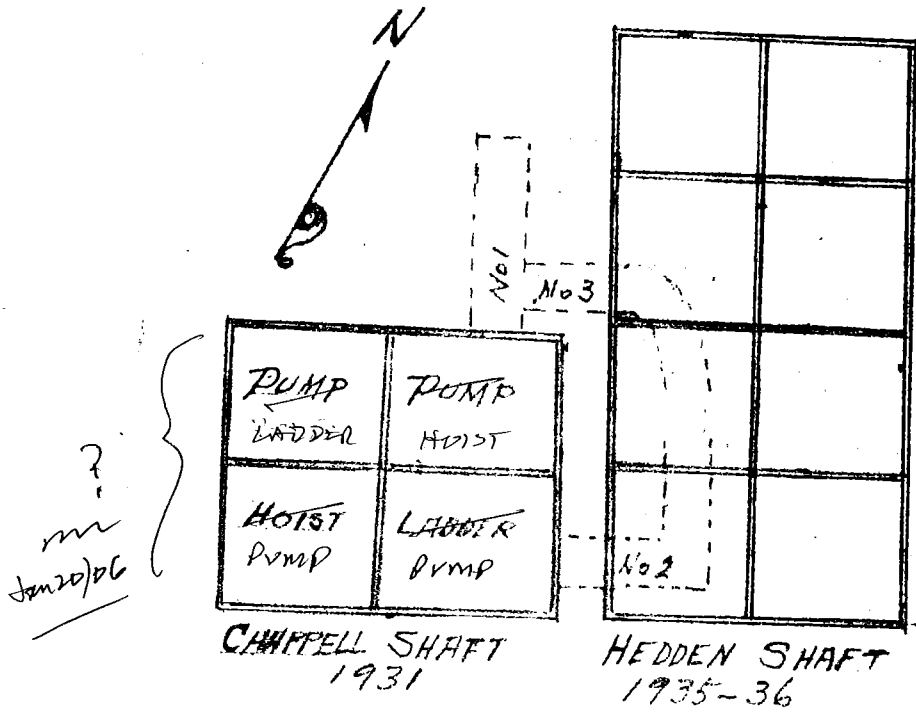 N
No1
No3
PUMP
LADDER
PUMP
HOIST
HOIST
PUMP
LADDER
PUMP
No2
?
Jan20/06
CHAPPELL SHAFT
1931
HEDDEN SHAFT
1935-36